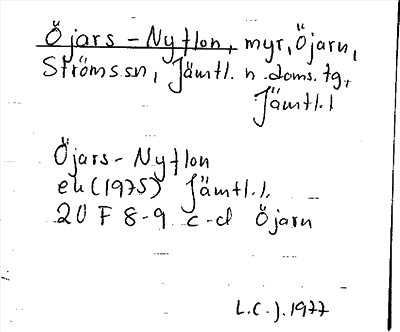 Öjars-Nyflon, myr, Öjarn,
Ströms sn, Jämtl. n. doms. tg,
Jämtl. l
Öjars-Nyflon
eu (1975) Jämtl. l.
20 F 8-9 c-d Öjarn
L.C.J. 1977